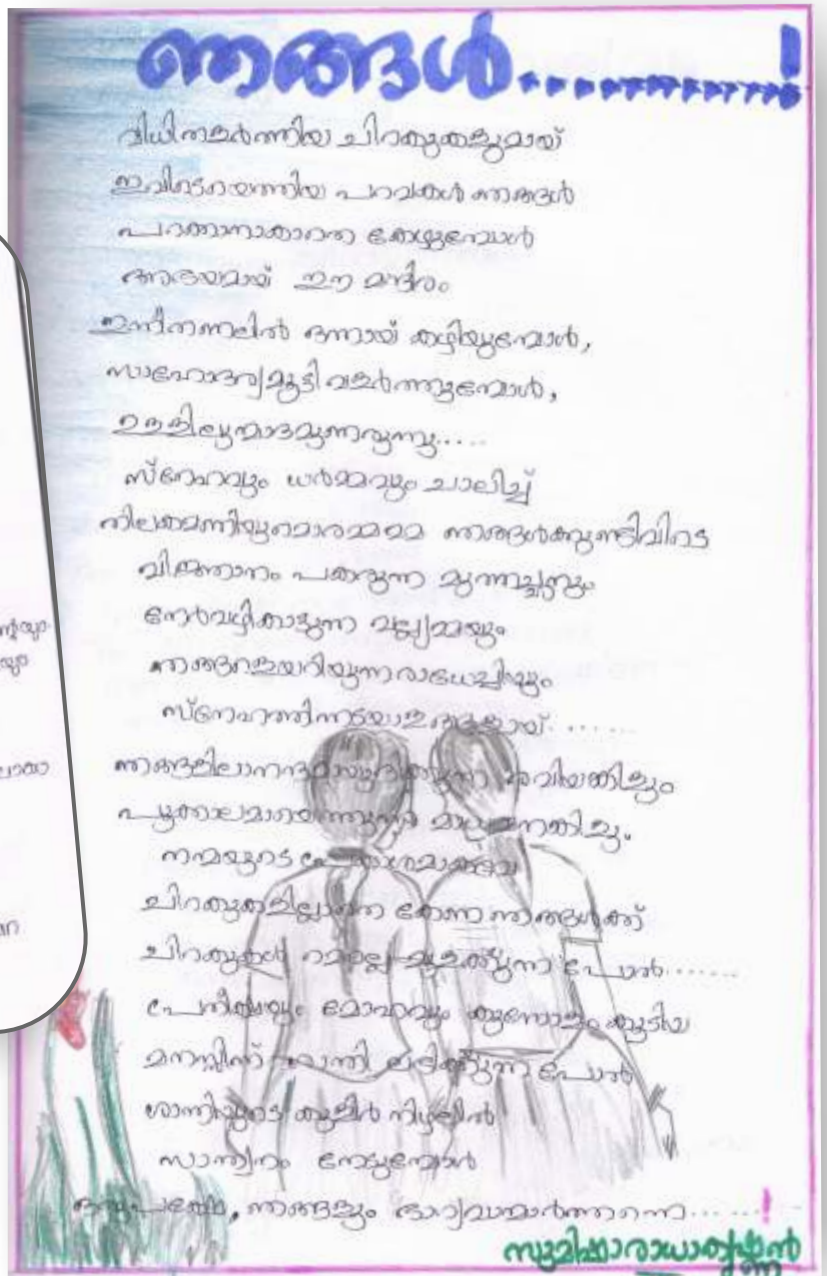 ഞങ്ങൾ............!
വിധിതളർത്തിയ ചിറകുകളുമായ്
ഇവിടെയെത്തിയ പറവകൾ ഞങ്ങൾ
പറക്കാനാകാതെ കേഴുമ്പോൾ
അഭയമായ് ഈ മന്ദിരം
ഇന്നീതണലിൽ ഒന്നായ് കഴിയുമ്പോൾ,
സാഹോദര്യമൂട്ടി വളർത്തുമ്പോൾ,
ഉള്ളിലുന്മാദമുണരുന്നു.....
സ്നേഹവും ധർമ്മവും ചാലിച്ച്
തിലകമണിയുമൊരമ്മമ ഞങ്ങൾക്കുണ്ടിവിടെ
വിജ്ഞാനം പകരുന്ന മുത്തച്ഛനും
നേർവഴികാട്ടുന്ന വല്യമ്മയും
ഞങ്ങളെയറിയുന്ന രാധേച്ചിയും
സ്നേഹത്തിന്നടയാളങ്ങളായ്.......
ഞങ്ങളിലാനന്ദമായുദിക്കുന്ന
പൂക്കാലമായെത്തുന്ന
നന്മയുടെ
ചിറകുകളില്ലാതെ കേണ ഞങ്ങൾക്ക്
ചിറകുകൾ മെല്ലെ മുളക്കുന്ന പോൽ.......
മോഹവും കുന്നോളം കൂടിയ
മനസ്സിന് ശാന്തി ലഭിക്കുന്ന പോൽ
ശാന്തിയുടെ കുളിർ നിഴലിൽ
സാന്ത്വനം നേടുമ്പോൾ
ഒരുപക്ഷേ, ഞങ്ങളും ഭാഗ്യവാന്മാർത്തന്നെ......!
സുമിഷാരാധാകൃഷ്ണൻ